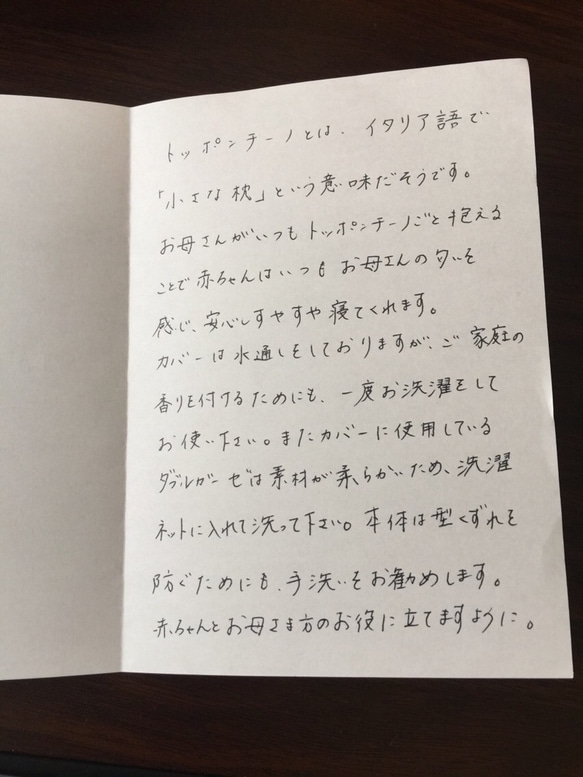 トッポンチーノとは、イタリア語で
「小さな枕」という意味だそうです。
お母さんがいつもトッポンチーノごと抱える
ことで赤ちゃんはいつもお母さんの匂いを
感じ、安心しすやすや寝てくれます。
カバーは水通しをしておりますが、ご家庭の
香りを付けるためにも、一度お洗濯をして
お使い下さい。またカバーに使用している
ダブルガーゼは素材が柔らかいため、洗濯
ネットに入れて洗って下さい。本体は型くずれを
防ぐためにも、手洗いをお勧めします。
赤ちゃんとお母さま方のお役に立てますように。